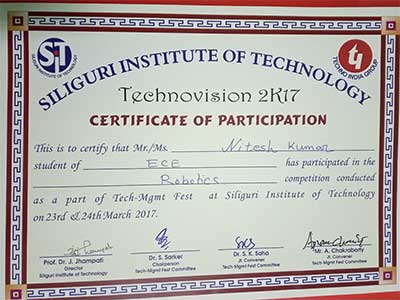 SiT
SILIGURI INSTITUTE OF TECHNOLOGY
TECHNO INDIA GROUP
SILIGURI INSTITUTE OF TECHNOLOGY
Technovision 2K17
CERTIFICATE OF PARTICIPATION
This is to certify that Mr./Ms. Nitesh Kumar
student of ECE has participated in the
Robotics competition conducted
as a part of Tech-Mgmt Fest at Siliguri Institute of Technology
on 23rd & 24th March 2017.
Prof. Dr. J. Jhampati
Director
Siliguri Institute of Technology
Dr. S. Sarker
Chairperson
Tech-Mgmt Fed Committee
Dr. S. K. Saha
Jt. Convener
Tech-Mgmt Fed Committee
Mr. A. Chakraborty
Jt. Convener
Tech-Mgmt Fed Committee